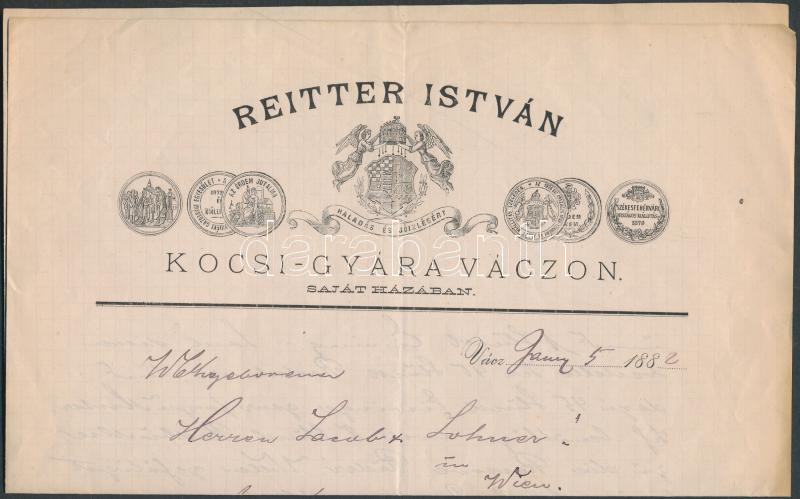 REITTER ISTVÁN
HALADÁS ÉS JÓIZLÉSÉRT
AZ ÉRDEM JUTALMA
SZÉKESFEHÉRVÁRI
ORSZÁGOS KIÁLLITÁS
1879
darabanth
KOCSI-GYÁRA VÁCZON.
SAJÁT HÁZÁBAN.
Vácz Januar 5 1882
Herren Jacob & Lohner
in
Wien.